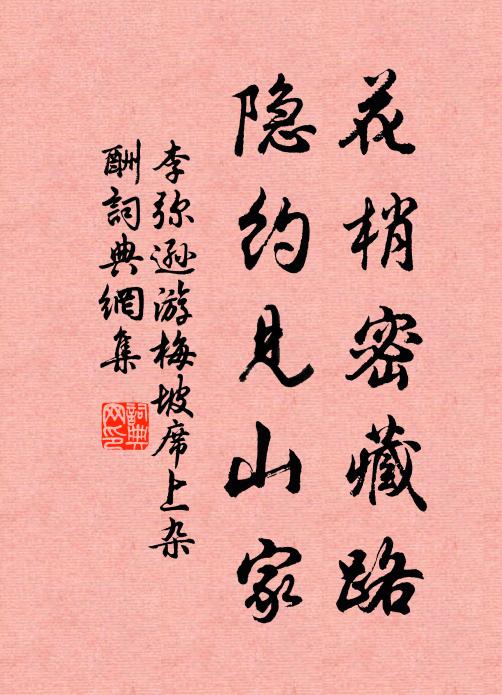 花梢密藏路
隐约见山家
李弥逊游梅坡席上杂
酬詞典網集
詞典
网印